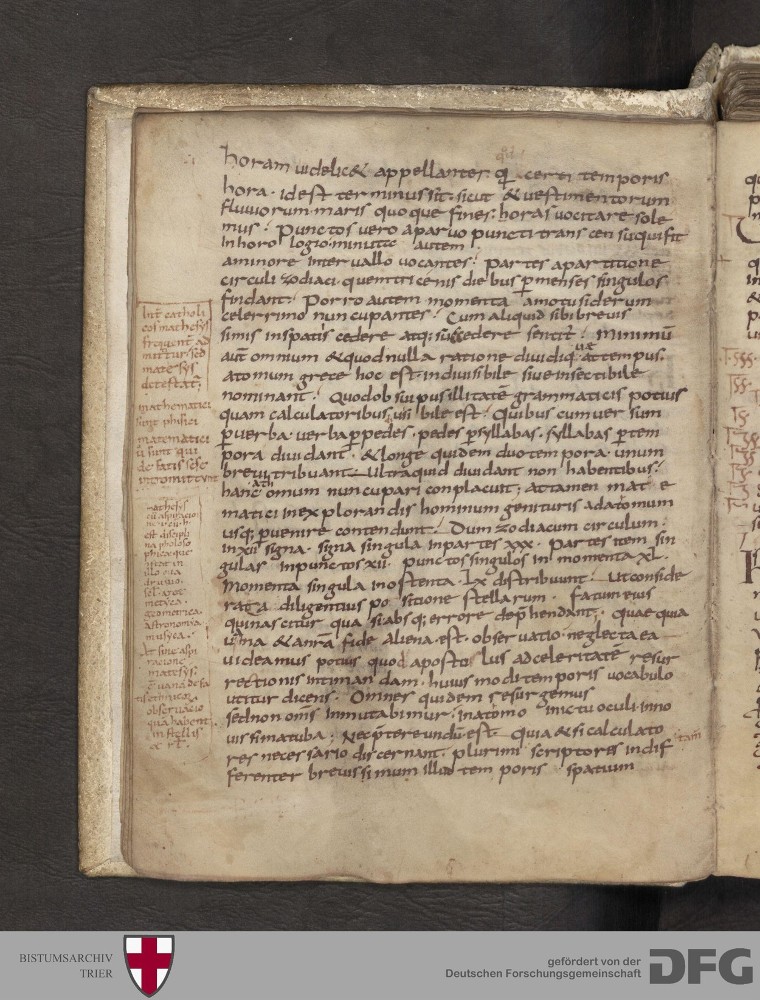 horam uidelic& appellantes q̄ certi temporis
hora · id est terminus sit · sicut & uestimentorum
fluuiorum maris quoque fines · horas uocitare sole
mus · Punctos uero a paruo puncti transcensu qui fit
in horologio minutas autem
a minore interuallo uocantes · Partes a partitione
circuli zodiaci quem tricenis diebus p menses singulos
findant · Porro autem momenta a motu siderum
celerrimo nuncupantes · Cum aliquid sibi breuis
simis in spatis cedere atq; succedere sentit · Minimū
aūt omnium & quod nulla ratione diuidi queat tempus ·
atomum grece hoc est indiuisibile siue insectibile
nominant · Quod ob sui pusillitatē grammaticis potius
quam calculatoribus uisibile est · Quibus cum uersum
p uerba · uerba p pedes · pedes p syllabas · syllabas p tem
pora diuidant · & longe quidem duo tempora · unum
breui tribuant ultra quid diuidant non habentibus ·
hanc atomum nuncupari conplacuit ; attamen mat e
matici in explorandis hominum genituris ad atomum
usq; puenire contendunt · Dum zodiacum circulum ·
in xii signa · signa singula in partes xxx · Partes item sin
gulas in punctos xii · punctos singulos in momenta xl ·
Momenta singula in ostenta · lx distribuunt · ut conside
rata diligentius positione stellarum · fatum eius
qui nascitur quasi absq; errore dep̄hendant · quae quia
uana & a nr̄a fide aliena est · obseruatio neglecta ea
uideamus potius quod apostolus ad celeritatē resur
rectionis intimandam · huius modi temporis uocabulo
utitur dicens · Omnes quidem resurgemus
sed non om̄s inmutabimur · in atomo in ictu oculi · in no
uissima tuba ; Nec p̄tereundū est · Quia & si calculato
res necessario discernant · plurimi tam scriptores indif
ferenter breuissimum illud temporis spatium
Int̄ catholi
cos mathesys
frequent ad
mittitur sed
matesys
detestat̄
mathematici
sunt phisici
matematici
ū sunt qui
de fatis sese
intromittunt
mathesis
est discipli
arsmetica
geometrica
astronomia
musyca ·
matesys
obseruacio
qua habent
in stellis
BISTUMSARCHIV
TRIER
gefördert von der
Deutschen Forschungsgemeinschaft
DFG